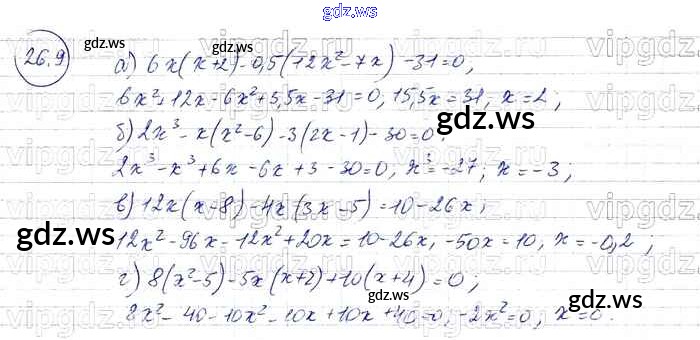 gdz.ws
26.9
а) 6x(x+2)-0,5(12x²-7x)-31=0,
6x²+12x-6x²+3,5x-31=0, 15,5x=31, x=2,
б) 2x³-x(x²-6)-3(2x-1)-30=0,
2x³-x³+6x-6x+3-30=0, x³=-27, x=-3,
в) 12x(x-8)-4x(3x-5)=10-26x,
12x²-96x-12x²+20x=10-26x, -50x=10, x=-0,2,
г) 8(x²-5)-5x(x+2)+10(x+4)=0;
8x²-40-10x²-10x+10x+40=0, -2x²=0, x=0.